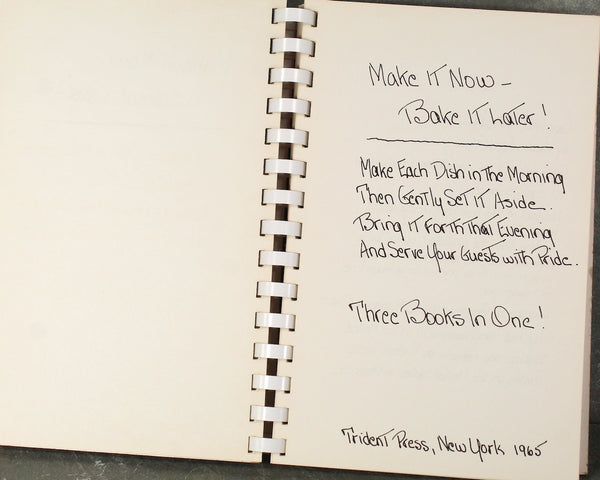 Make It Now –
Bake It Later!
Make Each Dish in The Morning
Then Gently Set It Aside.
Bring It Forth That Evening
And Serve Your Guests with Pride.
Three Books In One!
Trident Press, New York 1965